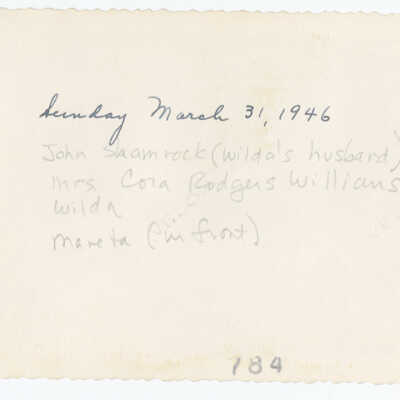 Sunday March 31, 1946
John Shamrock (Wilda's husband)
Mrs. Cora Rodgers Williams
Wilda
Mareta (in front)
184